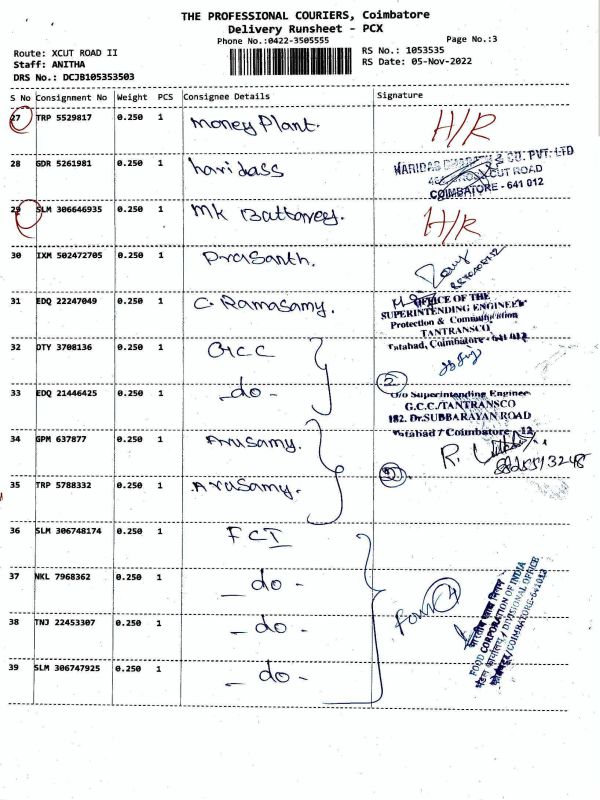 THE PROFESSIONAL COURIERS, Coimbatore
Delivery Runsheet - PCX
Phone No.:0422-3505555
Page No.:3
Route: XCUT ROAD II
RS No.: 1053535
Staff: ANITHA
RS Date: 05-Nov-2022
DRS No.: DCJB105353503
S No Consignment No Weight PCS Consignee Details Signature
27 TRP 5529817 0.250 1 Money Plant. H/R
28 GDR 5261981 0.250 1 haridass
CUT ROAD
COIMBATORE - 641 012
29 SLM 306646935 0.250 1 MK Battorey. H/R
30 IXM 502472705 0.250 1 Prasanth.
31 EDQ 22247049 0.250 1 C. Ramasamy.
OFFICE OF THE
SUPERINTENDING ENGINEER
Protection & Communication
TANTRANSCO
Tatabad, Coimbatore - 641 012
32 DTY 3708136 0.250 1 GCC
33 EDQ 21446425 0.250 1 - do -
2
O/o Superintending Engineer
G.C.C./TANTRANSCO
182. Dr.SUBBARAYAN ROAD
Tatabad / Coimbatore - 12
34 GPM 637877 0.250 1 Arusamy.
R.
35 TRP 5788332 0.250 1 Arusamy.
36 SLM 306748174 0.250 1 FCI
37 NKL 7968362 0.250 1 - do -
four 4
FOOD CORPORATION OF INDIA
DIVISIONAL OFFICE
COIMBATORE-641012
38 TNJ 22453307 0.250 1 - do -
39 SLM 306747925 0.250 1 - do -